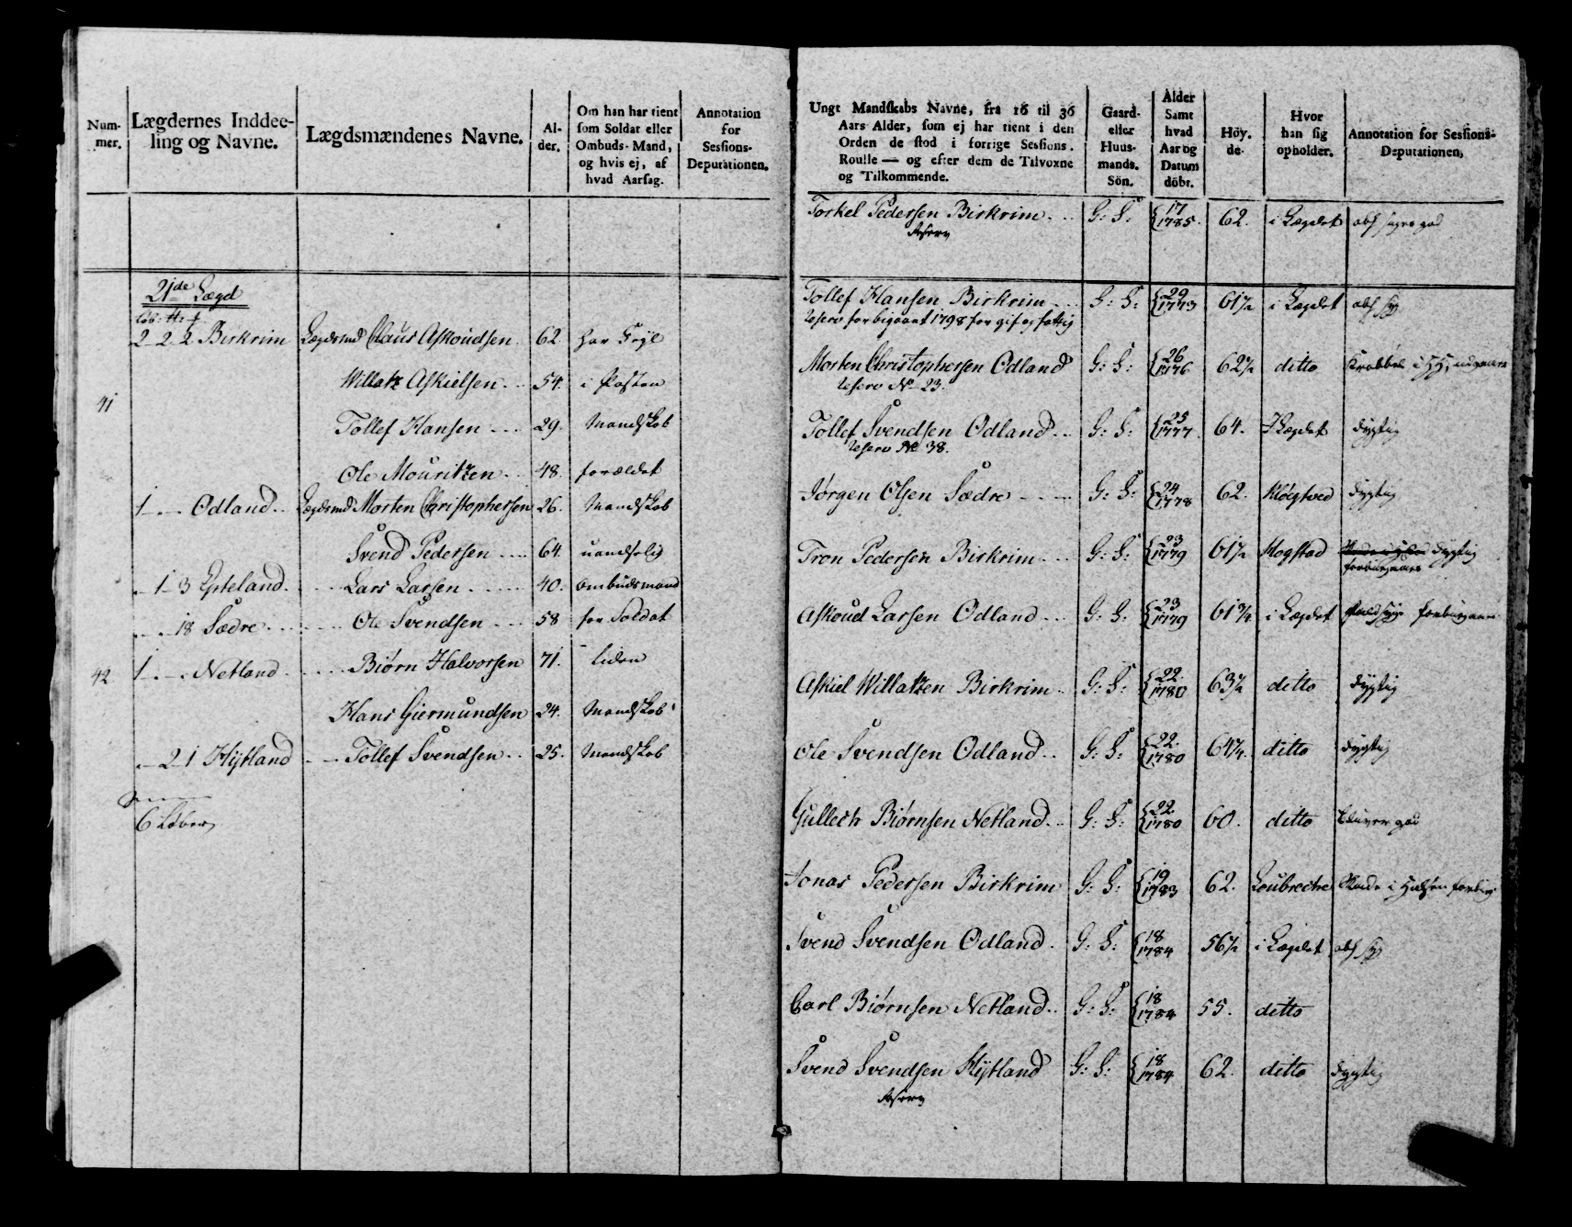 Num-
mer.
Lægdernes Inddee-
ling og Navne.
Lægdsmændenes Navne.
Al-
der.
Om han har tient
som Soldat eller
Ombuds-Mand,
og hvis ej, af
hvad Aarsag.
Annotation
for
Sessions-
Deputationen.
21de Lægd
2 2 2 Birkrim Lægdsmd Claus Askoudsen 62.
Willatz Askielsen 54.
41
Tollef Hansen 29. Mandskab
Ole Mouritzen 48. forældet
1 Odland Lægdsmd Morten Christophersen 26. Mandskab
Svend Pedersen 64.
1 3 Ysteland Lars Larsen 40. Ombudsmand
18 Sædre Ole Svendsen 58 for Soldat
42 1 Netland Biørn Halvorsen 71. liden
Hans Giermundsen 24. Mandskab
2 1 Hÿtland Tollef Svendsen 25. Mandskab
6 Løber
Ungt Mandskabs Navne, fra 16 til 36
Aars Alder, som ej har tient i den
Orden de stod i forrige Sessions.
Roulle — og efter dem de Tilvoxne
og Tilkommende.
Gaard-
eller
Huus-
mands.
Sön.
Alder
Samt
hvad
Aar og
Datum
döbt.
Höy-
de.
Hvor
han sig
opholder.
Annotation for Sessions-
Deputationen,
Torkel Pedersen Birkrim G: S: 17 1785. 62. i Lægdet
Reserv
Tollef Hansen Birkrim G: S: 29 1773 61½ i Lægdet
Reserv forbigaaet 1798 for gift og fattig
Morten Christophersen Odland G: S: 26 1776 62½ ditto
Reserv No 23.
Tollef Svendsen Odland G: S: 25 1777 64. I Lægdet dygtig
Reserv No 38.
Jørgen Olsen Sædre G: S: 24 1778 62. Kløgtved dygtig
Tron Pedersen Birkrim G: S: 23 1779 61½ Hogstad dygtig
Askoud Larsen Odland G: S: 23 1779 61¾ i Lægdet
Askiel Willatzen Birkrim G: S: 22. 1780 63½ ditto dygtig
Ole Svendsen Odland G: S: 22. 1780 64¼. ditto dygtig
Gullech Biørnsen Netland G: S: 22. 1780 60. ditto bliver god
Jonas Pedersen Birkrim G: S: 19 1783 62. Loubrecke
Svend Svendsen Odland G: S: 18 1784 56½ i Lægdet
Carl Biørnsen Netland G: S: 18 1784 55. ditto
Svend Svendsen Hÿtland G: S: 18 1784 62. ditto dygtig
Reserv